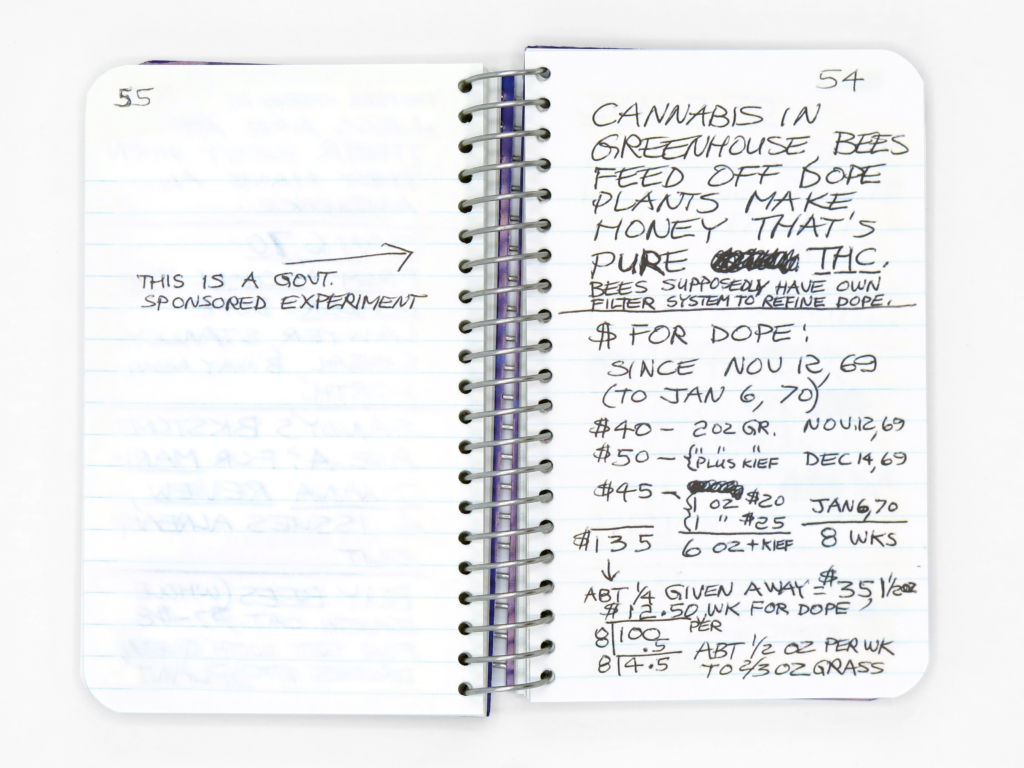 55
THIS IS A GOVT.
SPONSORED EXPERIMENT
54
CANNABIS IN
GREENHOUSE, BEES
FEED OFF DOPE
PLANTS MAKE
HONEY THAT'S
PURE THC.
BEES SUPPOSEDLY HAVE OWN
FILTER SYSTEM TO REFINE DOPE.
$ FOR DOPE:
SINCE NOV 12, 69
(TO JAN 6, 70)
$40 — 2 OZ GR. NOV.12,69
$50 — { " PLUS " KIEF DEC 14,69
$45 — { 1 OZ $20 JAN 6,70
{ 1 " $25
$135 6 OZ + KIEF 8 WKS
↓
ABT 1/4 GIVEN AWAY = $35, 1 1/2 OZ
$12.50, WK FOR DOPE
8 | 100 PER
.5 ABT 1/2 OZ PER WK
8 | 4.5 TO 2/3 OZ GRASS